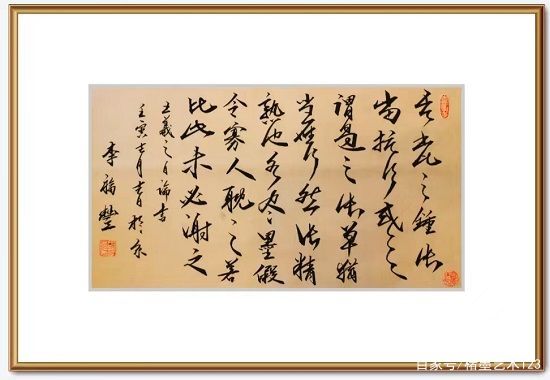 吾之鍾張
當抗行或
謂過之張草猶
當雁行然張精
熟池水盡墨假
令寡人耽之若
此未必謝之
王羲之自論書
壬寅月書於京
李福豐
百家号/楮墨艺术123